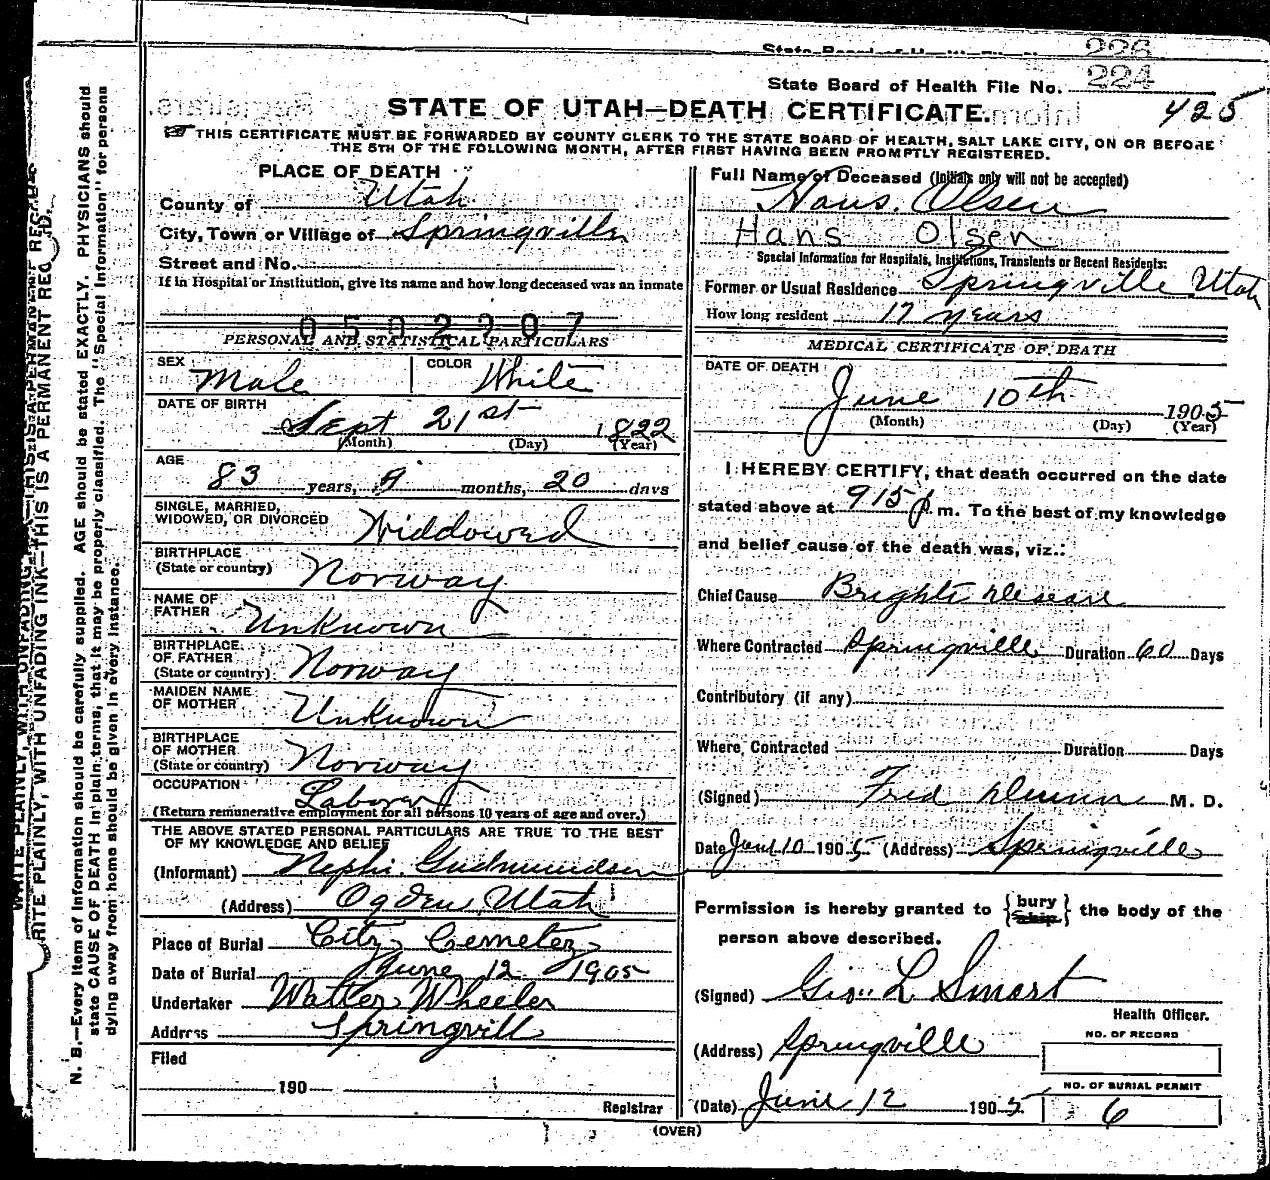 State Board of Health File No. 226
224
425
STATE OF UTAH—DEATH CERTIFICATE.
THIS CERTIFICATE MUST BE FORWARDED BY COUNTY CLERK TO THE STATE BOARD OF HEALTH, SALT LAKE CITY, ON OR BEFORE
THE 5TH OF THE FOLLOWING MONTH, AFTER FIRST HAVING BEEN PROMPTLY REGISTERED.
PLACE OF DEATH
County of Utah
City, Town or Village of Springville
Street and No.
If in Hospital or Institution, give its name and how long deceased was an inmate
0502207
PERSONAL AND STATISTICAL PARTICULARS
SEX Male COLOR White
DATE OF BIRTH
Sept 21st 1822
(Month) (Day) (Year)
AGE
83 years, 9 months, 20 days
SINGLE, MARRIED,
WIDOWED, OR DIVORCED Widdowed
BIRTHPLACE
(State or country) Norway
NAME OF
FATHER Unknown
BIRTHPLACE
OF FATHER
(State or country) Norway
MAIDEN NAME
OF MOTHER Unknown
BIRTHPLACE
OF MOTHER
(State or country) Norway
OCCUPATION Laborer
(Return remunerative employment for all persons 10 years of age and over.)
THE ABOVE STATED PERSONAL PARTICULARS ARE TRUE TO THE BEST
OF MY KNOWLEDGE AND BELIEF
(Informant) Nephi Gudmundsen
(Address) Ogden, Utah
Place of Burial City Cemetery
Date of Burial June 12 1905
Undertaker Walter Wheeler
Address Springvill
Filed
190
Registrar
Full Name of Deceased (Initials only will not be accepted)
Hans. Olsen
Hans Olsen
Special Information for Hospitals, Institutions, Transients or Recent Residents:
Former or Usual Residence Springville Utah
How long resident 17 years
MEDICAL CERTIFICATE OF DEATH
DATE OF DEATH
June 10th 1905
(Month) (Day) (Year)
I HEREBY CERTIFY, that death occurred on the date
stated above at 915 p. m. To the best of my knowledge
and belief cause of the death was, viz.:
Chief Cause Brights disease
Where Contracted Springville Duration 60 Days
Contributory (if any)
Where Contracted Duration Days
(Signed) Fred M. D.
Date June 10 1905 (Address) Springville
Permission is hereby granted to {bury ship} the body of the
person above described.
(Signed) Geo. L Smart
Health Officer.
(Address) Springville
NO. OF RECORD
(Date) June 12 1905
NO. OF BURIAL PERMIT
6
(OVER)
WRITE PLAINLY, WITH UNFADING INK—THIS IS A PERMANENT RECORD.
N. B.—Every item of information should be carefully supplied. AGE should be stated EXACTLY. PHYSICIANS should
state CAUSE OF DEATH in plain terms, that it may be properly classified. The "Special Information" for persons
dying away from home should be given in every instance.